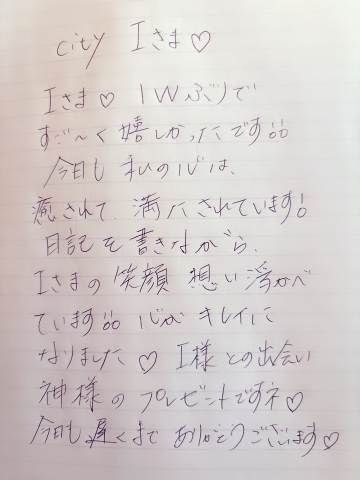 city Iさま♡
Iさま♡ 1Wぶりで
すご〜く嬉しかったです!!
今日も 私の心は、
癒されて、満たされています!
日記を書きながら、
Iさまの笑顔 想い浮かべ
ています!! 心が キレイに
なりました♡ I様との出会い
神様のプレゼントですネ♡
今日も遅くまで ありがとうございます♡